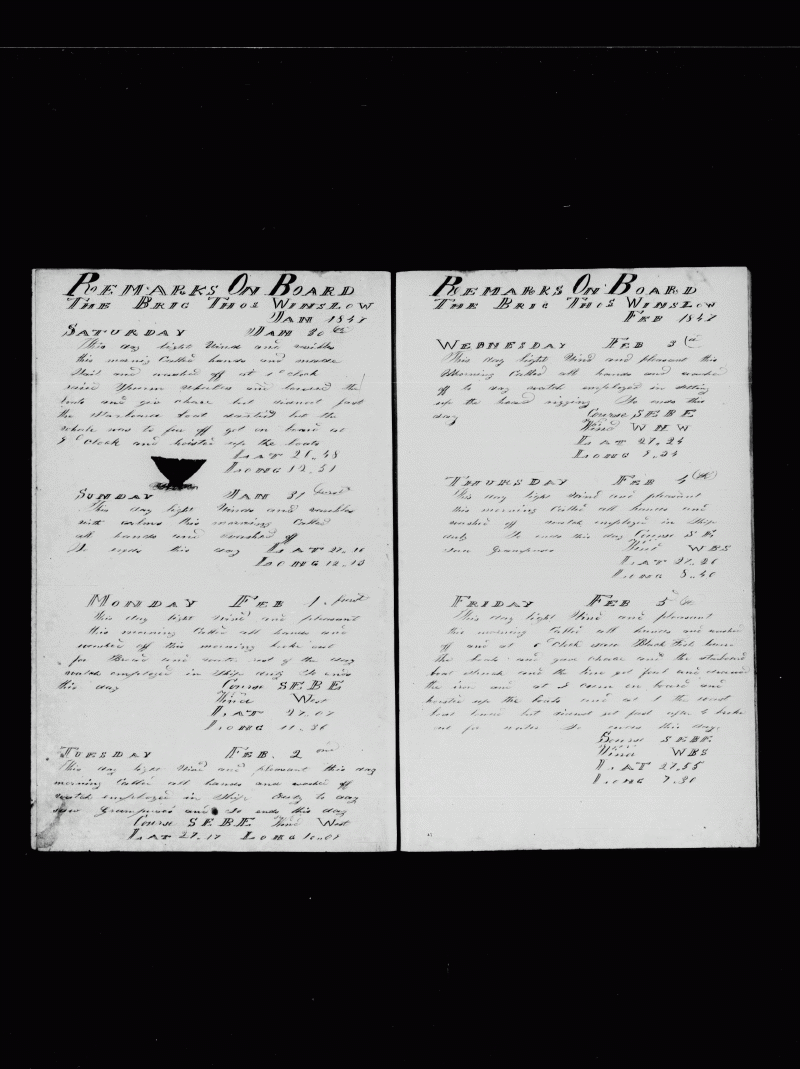 REMARKS ON BOARD
THE BRIG THOS WINSLOW
JAN 1847
SATURDAY JAN 30
This day light Winds and
this morning Called hands and made
Sail and washed off at o Clock
and lowered the
boats and give chase but didnot fast
the Starboard boat but the
whale was to far off got on board at
o Clock and hoisted up the boats
LAT 21.48
LONG 12.51
SUNDAY JAN 31 first
This day light Winds and
with calms this morning Called
all hands and washed off
So ends this day LAT 27.16
LONG 12.13
MONDAY FEB 1. first
this day light Wind and pleasant
this morning Called all hands and
washed off this morning broke out
for Bread and rest of the day
watch employed in Ships duty So ends
this day Course SEBE
Wind West
LAT 27.07
LONG 11.36
TUESDAY FEB. 2 ond
This day light Wind and pleasant this day
morning Called all hands and washed off
watch employed in Ships Duty to day
saw Grampuses and So ends this day
Course SEBE Wind West
LAT 27.17 LONG 10.07
REMARKS ON BOARD
THE BRIG THOS WINSLOW
FEB 1847
WEDNESDAY FEB 3
This day light Wind and pleasant this
Morning Called all hands and washed
off to day watch employed in setting
up the head rigging So ends this
day Course SEBE
Wind WNW
LAT 27.24
LONG 9.24
THURSDAY FEB 4 th
This day light Wind and pleasant
this morning Called all hands and
washed off watch employed in Ships
duty So ends this day Course SE
saw Grampuses Wind WBS
LAT 27.26
LONG 8.40
FRIDAY FEB 5 th
This day light Wind and pleasant
this morning Called all hands and washed
off and at o Clock saw Black Fish
the boats and gave chase and the starboard
boat struck and the line got foul and
the iron and at came on board and
hoisted up the boats and at the
boat but didnot get fast after to broke
out for water So ends this day
Course SEBE
Wind WBS
LAT 27.55
LONG 7.30